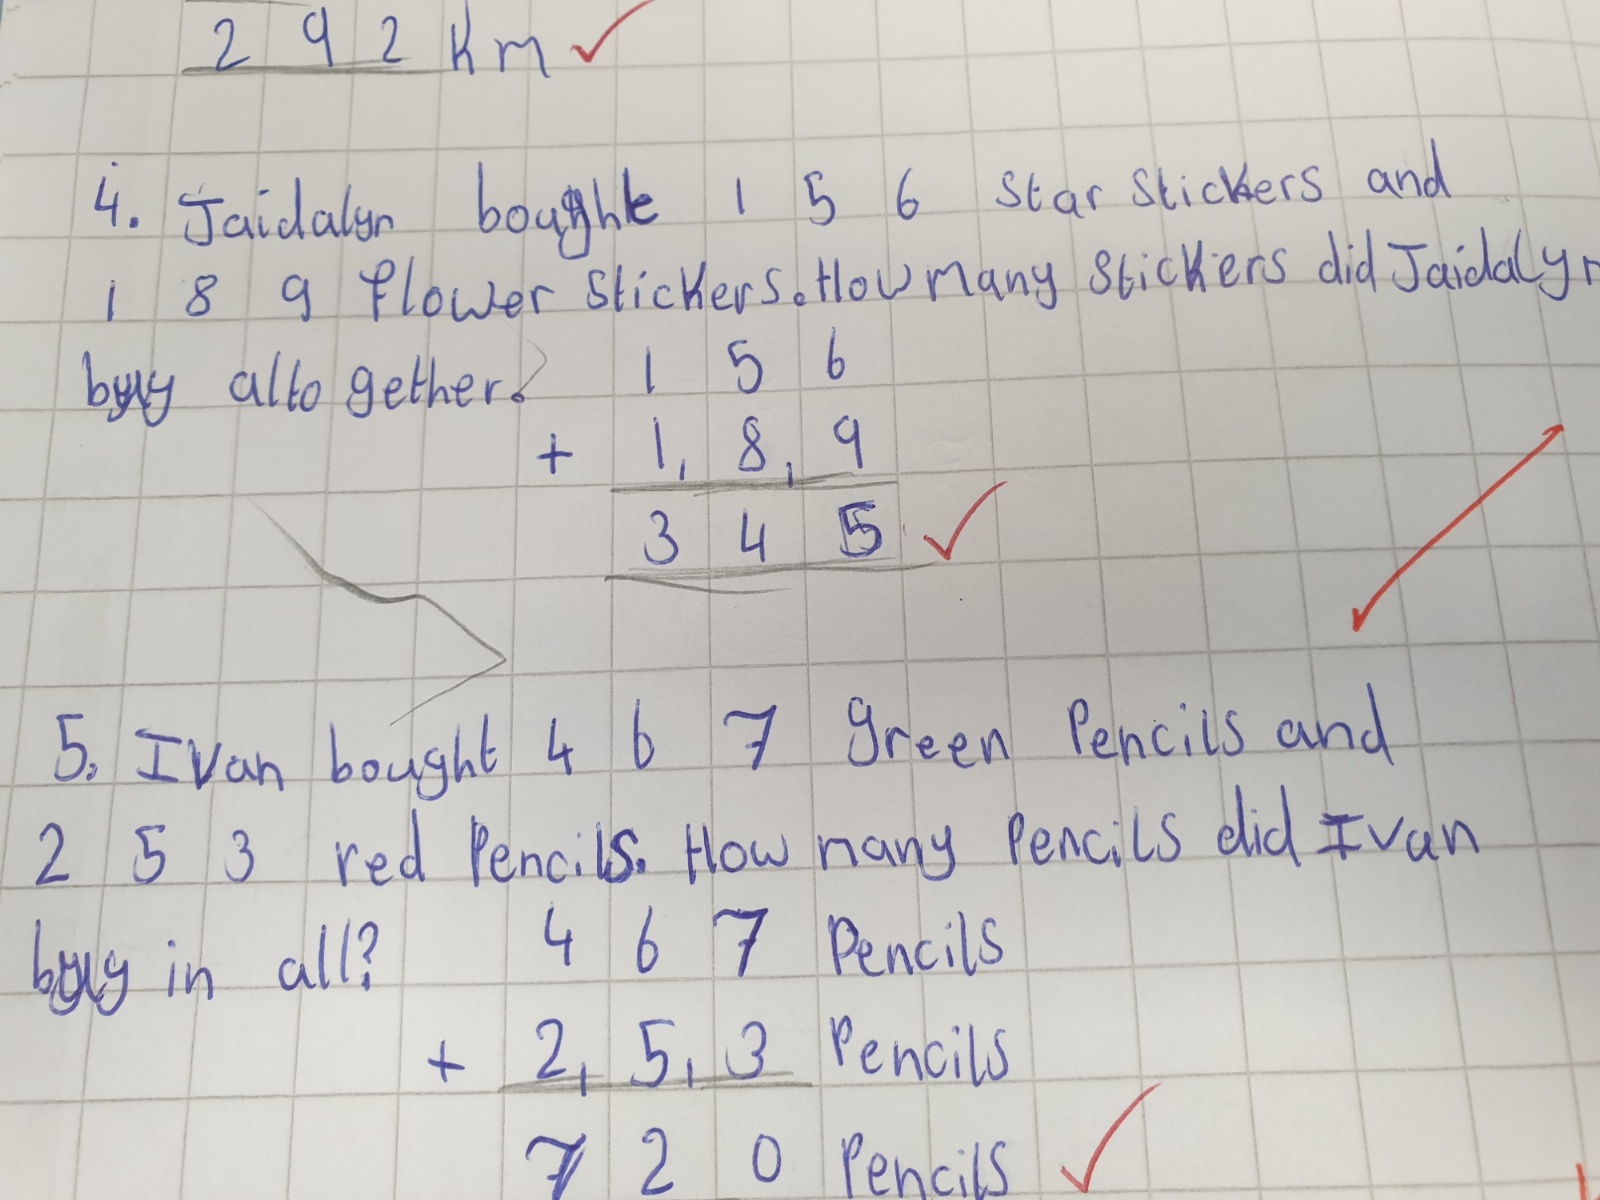 2 9 2 Km
4. Jaidalyn bought 1 5 6 Star Stickers and
1 8 9 flower Stickers. How many Stickers did Jaidalyn
buy alto gether?
1 5 6
+ 1, 8, 9
3 4 5
5. Ivan bought 4 6 7 green Pencils and
2 5 3 red Pencils. How many Pencils did Ivan
buy in all?
4 6 7 Pencils
+ 2, 5, 3 Pencils
7 2 0 Pencils